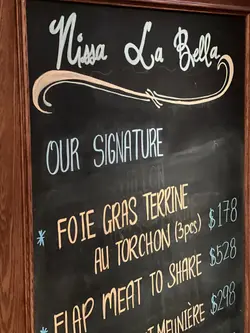 Nissa La Bella
OUR SIGNATURE
* FOIE GRAS TERRINE
AU TORCHON (3pcs) $178
* FLAP MEAT TO SHARE $528
MEUNIÈRE $298